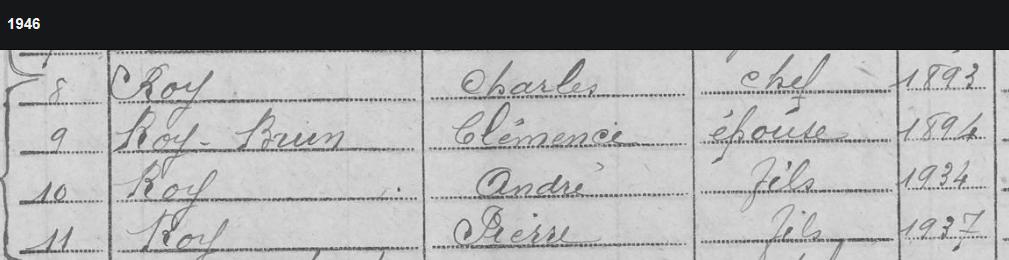 1946
8 Roy Charles chef 1893
9 Roy - Brun Clémence épouse 1894
10 Roy André fils 1934
11 Roy Pierre fils 1937